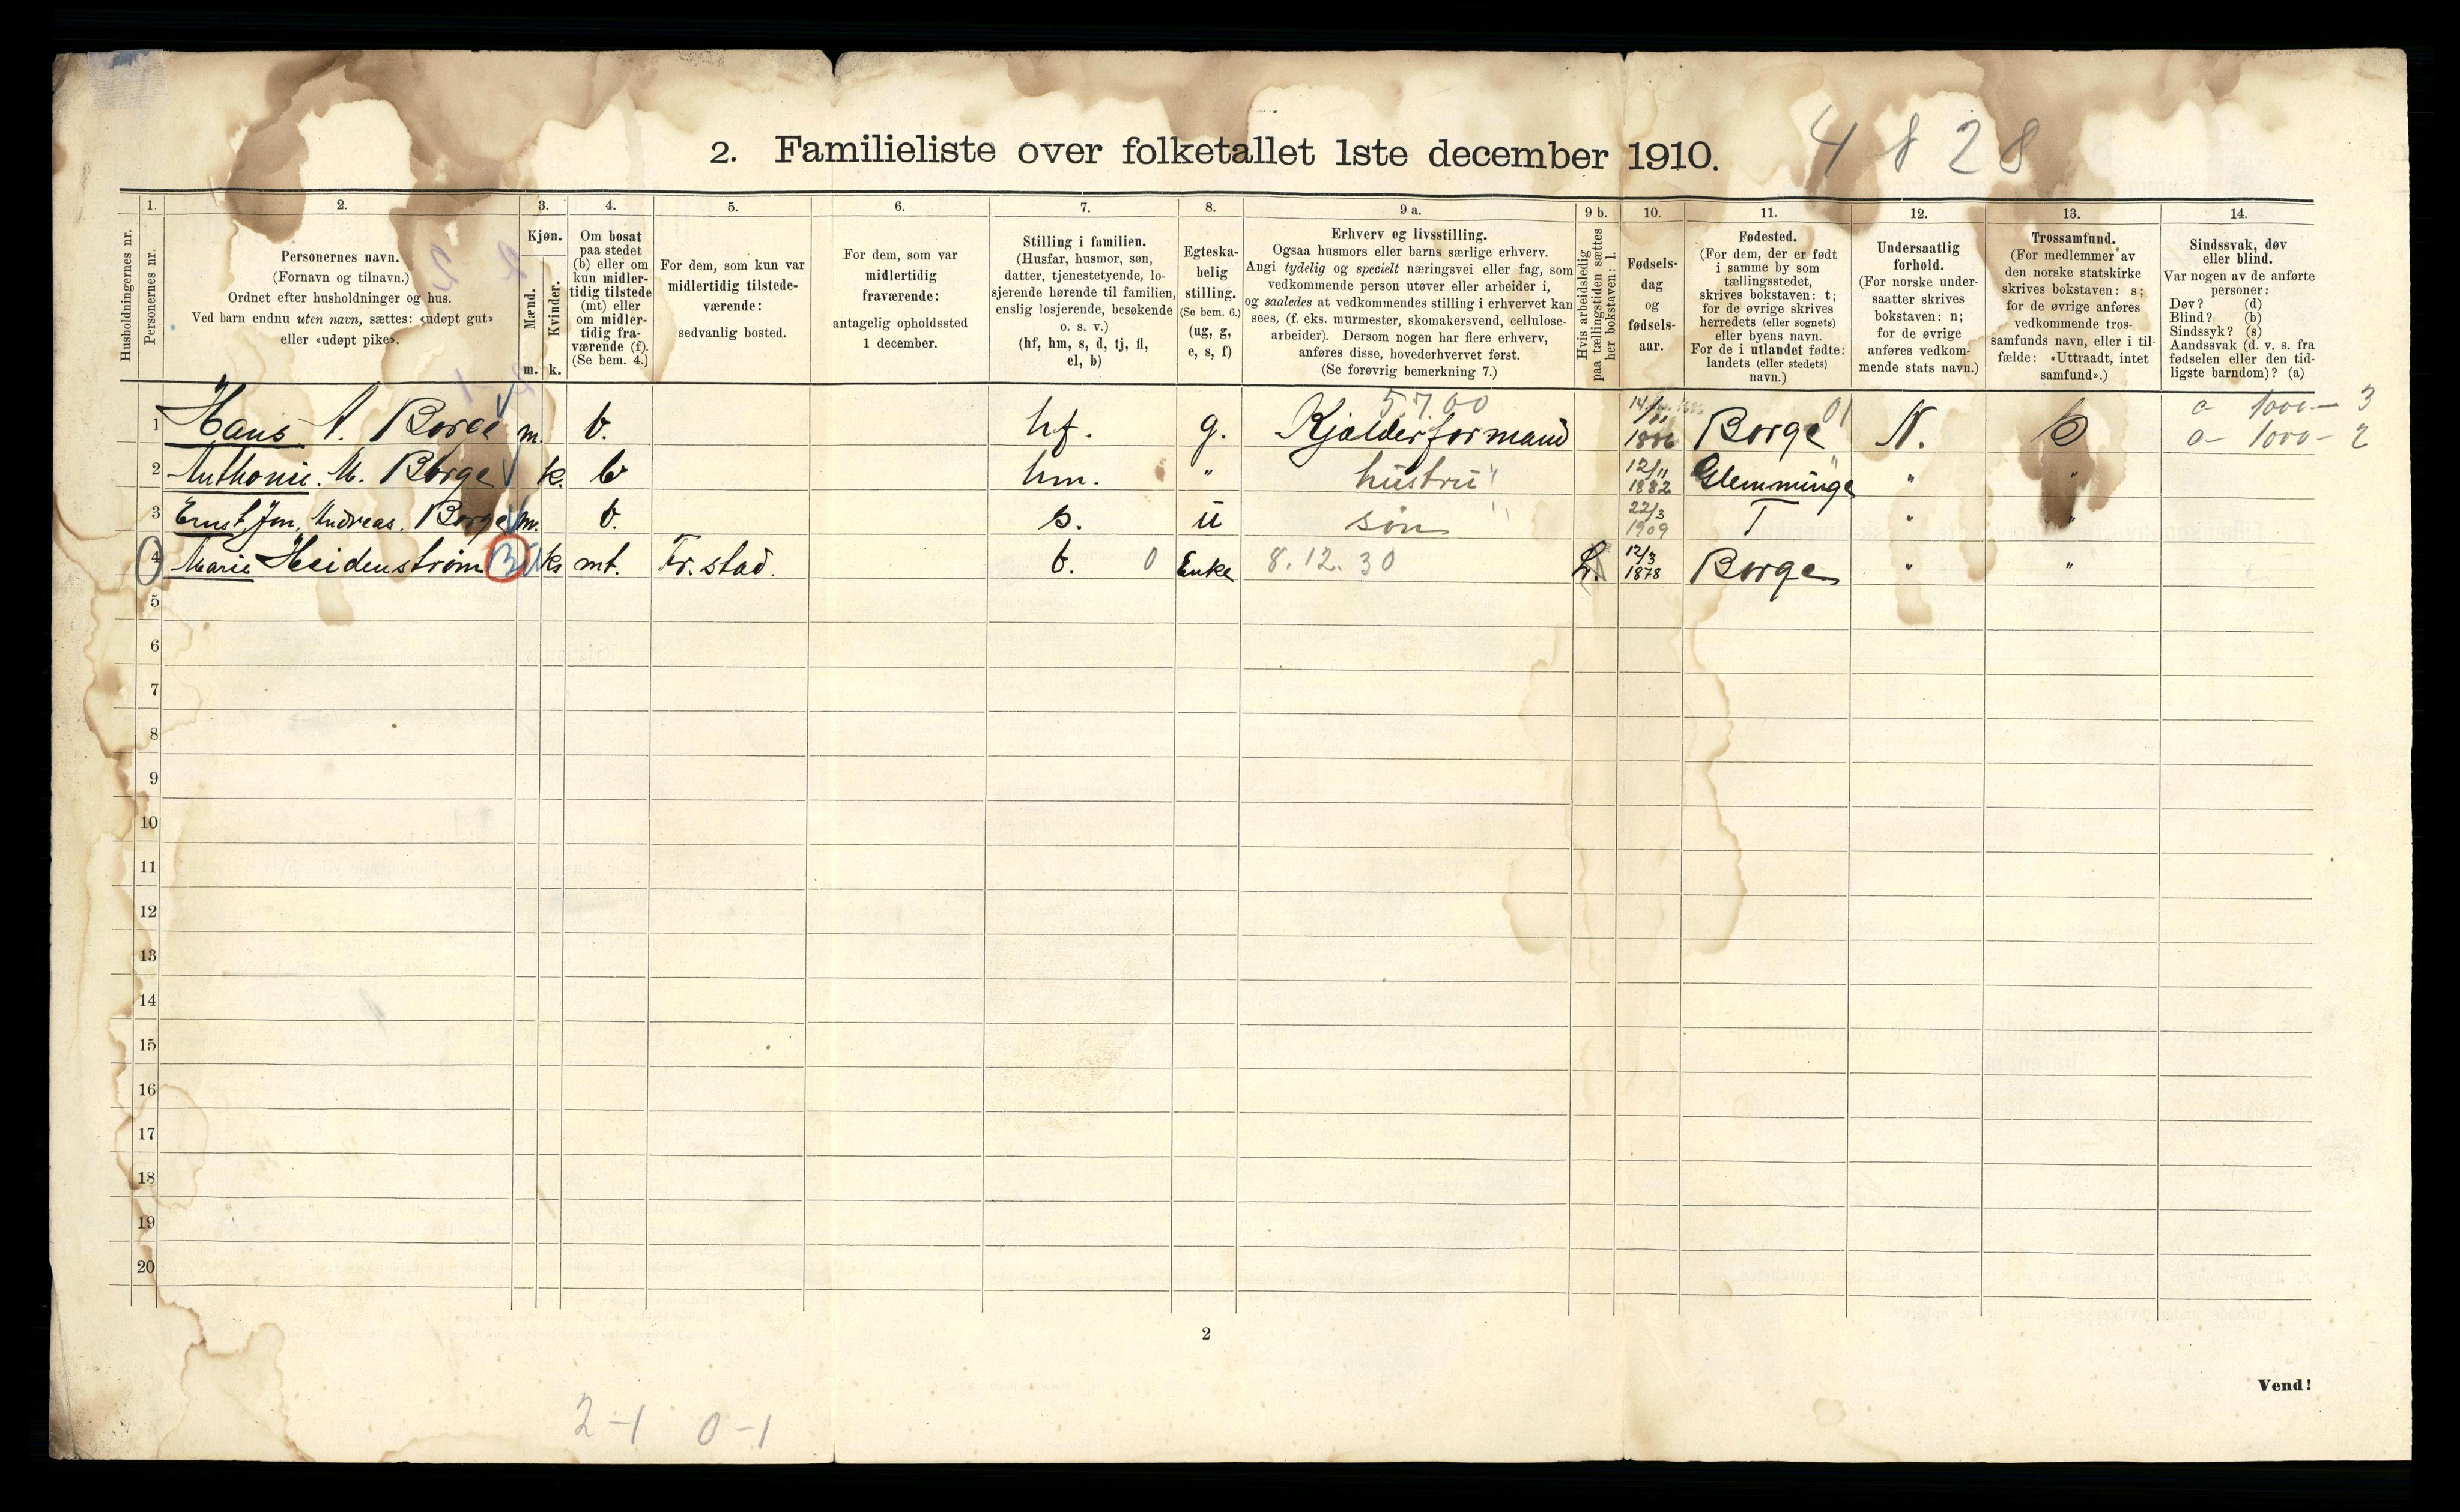 2. Familieliste over folketallet 1ste december 1910.
4828
Husholdningernes nr.
1.
Personernes nr.
2.
Personernes navn.
(Fornavn og tilnavn.)
Ordnet efter husholdninger og hus.
Ved barn endnu uten navn, sættes: «udøpt gut»
eller «udøpt pike».
3.
Kjøn.
Mænd.
Kvinder.
m. k.
4.
Om bosat
paa stedet
(b) eller om
kun midler-
tidig tilstede
(mt) eller
om midler-
tidig fra-
værende (f).
(Se bem. 4.)
5.
For dem, som kun var
midlertidig tilstede-
værende:
sedvanlig bosted.
6.
For dem, som var
midlertidig
fraværende:
antagelig opholdssted
1 december.
7.
Stilling i familien.
(Husfar, husmor, søn,
datter, tjenestetyende, lo-
sjerende hørende til familien,
enslig losjerende, besøkende
o. s. v.)
(hf, hm, s, d, tj, fl,
el, b)
8.
Egteska-
belig
stilling.
(Se bem. 6.)
(ug, g,
e, s, f)
9 a.
Erhverv og livsstilling.
Ogsaa husmors eller barns særlige erhverv.
Angi tydelig og specielt næringsvei eller fag, som
vedkommende person utøver eller arbeider i,
og saaledes at vedkommendes stilling i erhvervet kan
sees, (f. eks. murmester, skomakersvend, cellulose-
arbeider). Dersom nogen har flere erhverv,
anføres disse, hovederhvervet først.
(Se forøvrig bemerkning 7.)
9 b.
Hvis arbeidsledig
paa tællingstiden sættes
her bokstaven: l.
10.
Fødsels-
dag
og
fødsels-
aar.
11.
Fødested.
(For dem, der er født
i samme by som
tællingsstedet,
skrives bokstaven: t;
for de øvrige skrives
herredets (eller sognets)
eller byens navn.
For de i utlandet fødte:
landets (eller stedets)
navn.)
12.
Undersaatlig
forhold.
(For norske under-
saatter skrives
bokstaven: n;
for de øvrige
anføres vedkom-
mende stats navn.)
13.
Trossamfund.
(For medlemmer av
den norske statskirke
skrives bokstaven: s;
for de øvrige anføres
vedkommende tros-
samfunds navn, eller i til-
fælde: «Uttraadt, intet
samfund».)
14.
Sindssvak, døv
eller blind.
Var nogen av de anførte
personer:
Døv? (d)
Blind? (b)
Sindssyk? (s)
Aandssvak (d. v. s. fra
fødselen eller den tid-
ligste barndom)? (a)
57.00
01
c- 1000- 3
1 Hans A. Borge m. b. hf. g. Kjælderformand 1886 Borge N.
o- 1000- 2
2 Anthonie. M. Borge k. b hm. " hustru " 12/11 1882 Glemminge " "
3 Ernst, Jon, Andreas. Borge m. b. s. u søn " 22/3 1909 T " "
4 Marie Heidenstrøm k. mt. Fr.stad. b. 0 Enke 8.12.30 L. 12/3 1878 Borge " "
5
6
7
8
9
10
11
12
13
14
15
16
17
18
19
20
2
Vend!
2-1 0-1